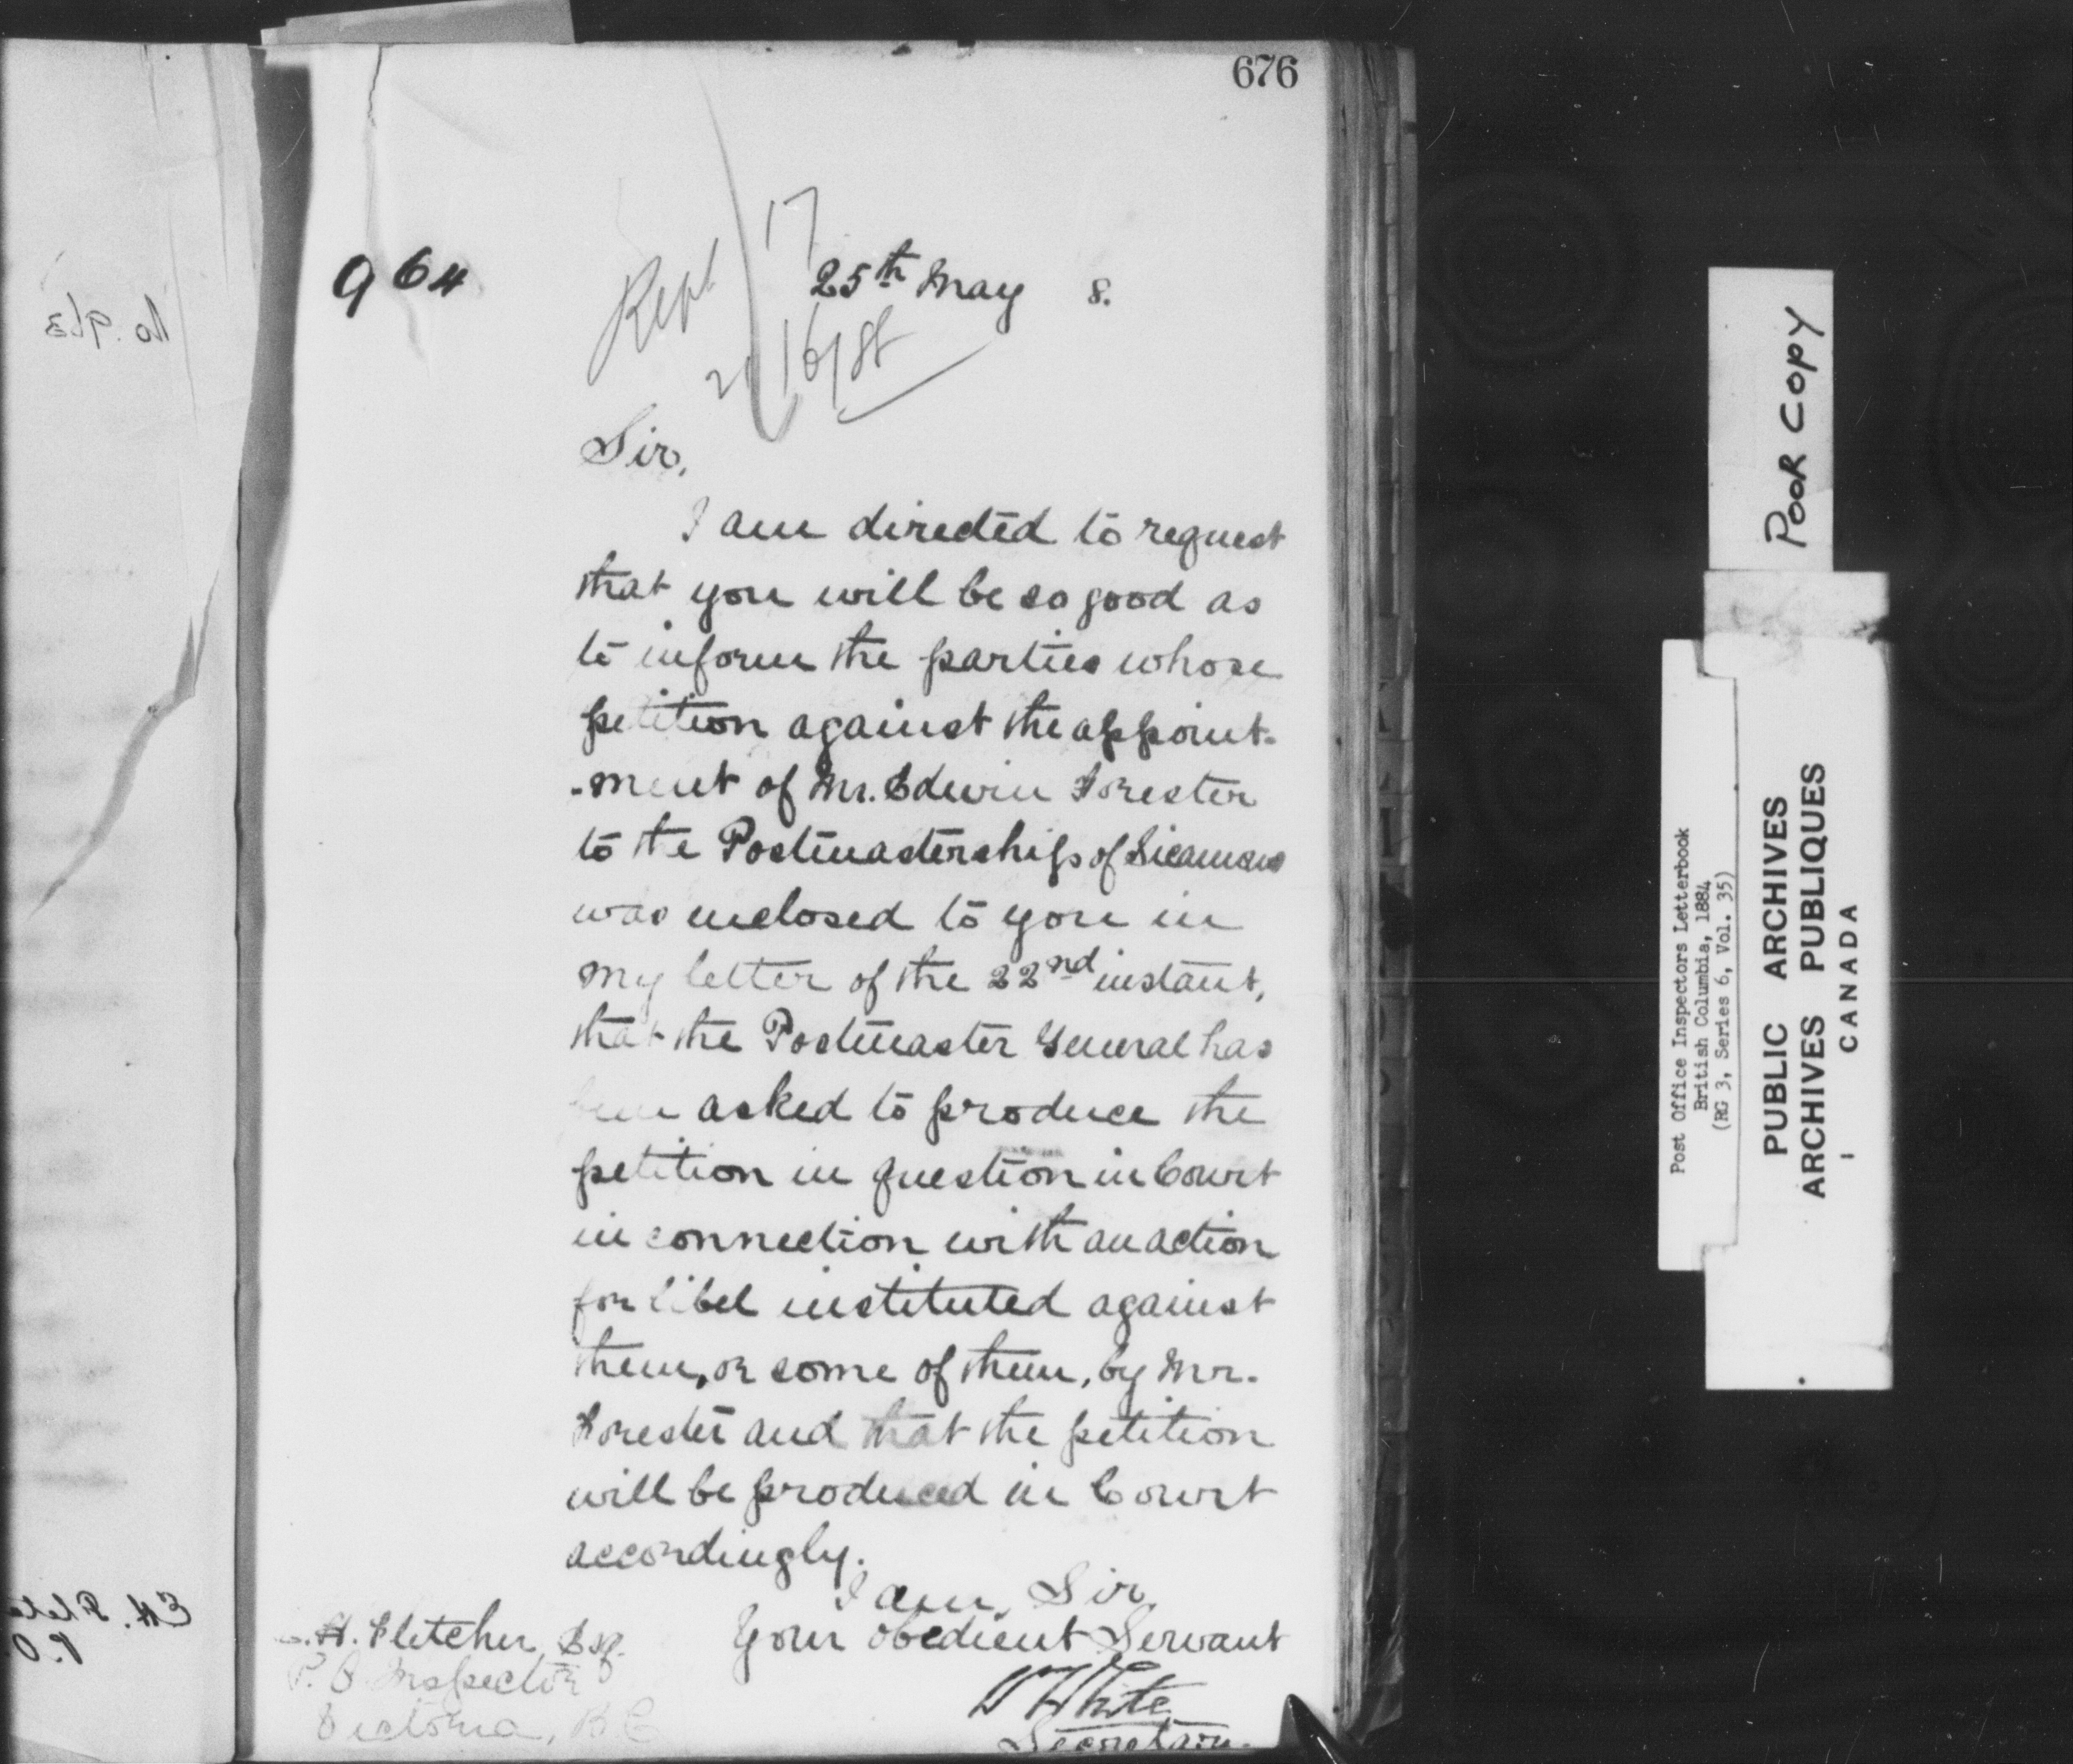 676
No. 963
964
17
25th May 8.
Rept
Sir,
I am directed to request
that you will be so good as
to inform the parties whose
petition against the appoint-
-ment of Mr. Edwin Forester
to the Postmastership of Sicamous
was enclosed to you in
my letter of the 22nd instant,
that the Postmaster General has
been asked to produce the
petition in question in Court
in connection with an action
for libel instituted against
them, or some of them, by Mr.
Forester and that the petition
will be produced in Court
accordingly.
I am, Sir
Your obedient Servant
W White
Secretary.
E. H. Fletcher, Esq.
P. O. Inspector
Victoria, B C
E. H. Fletche
P. O.
POOR COPY
Post Office Inspectors Letterbook
British Columbia, 1884
(RG 3, Series 6, Vol. 35)
PUBLIC ARCHIVES
ARCHIVES PUBLIQUES
CANADA